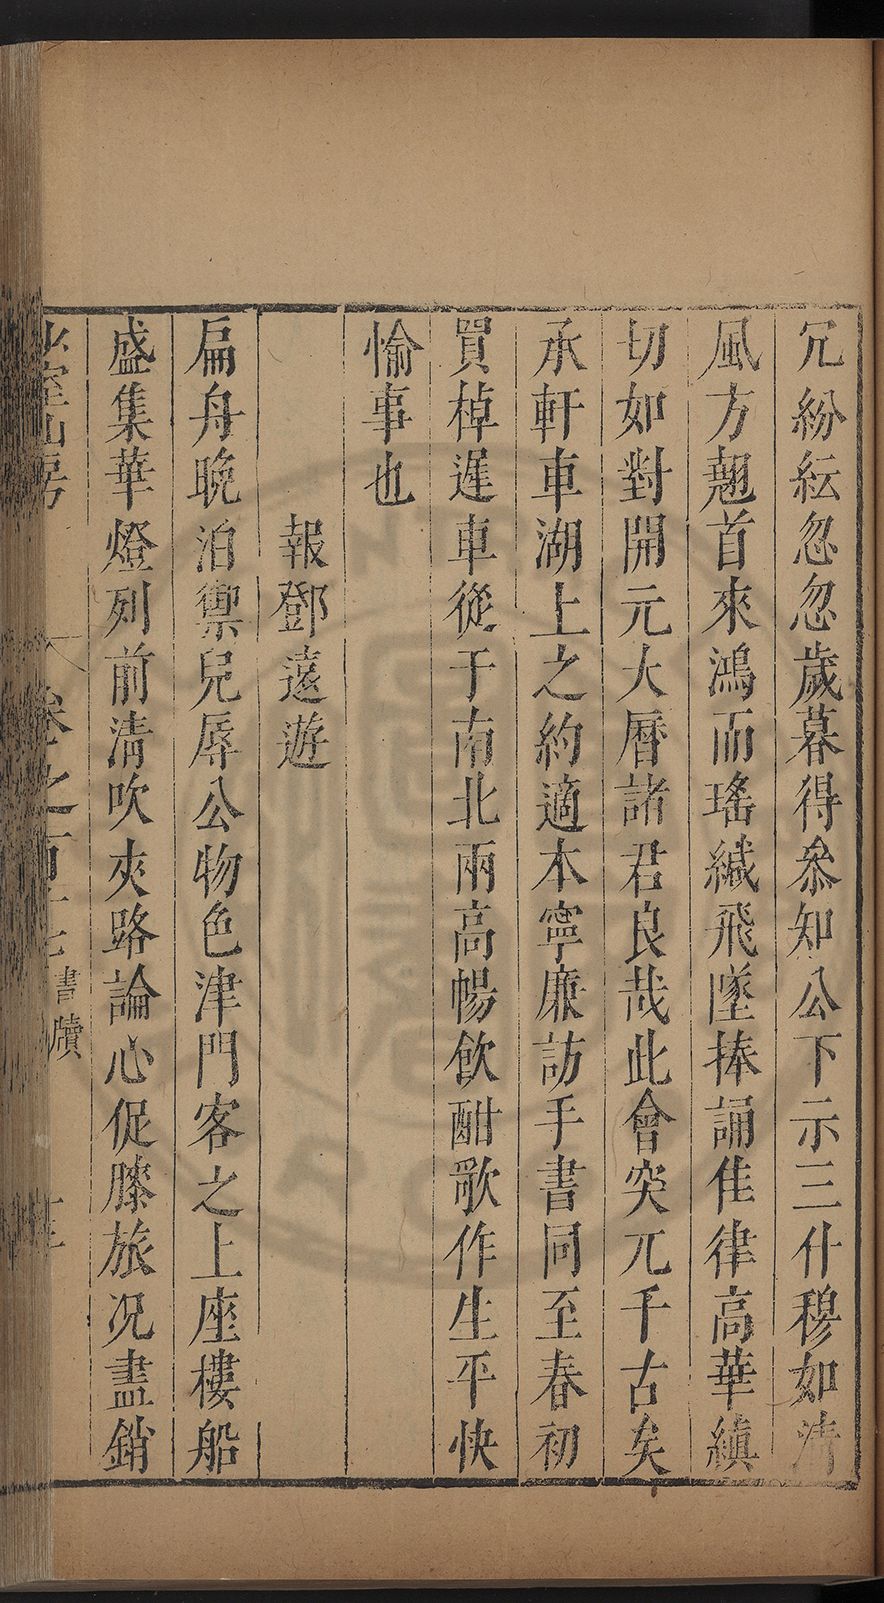 冗紛紜忽忽歲暮得叅知公下示三什穆如清
風方翹首來鴻而瑤緘飛墜捧誦佳律高華縝
切如對開元大曆諸君良哉此會突兀千古矣
承軒車湖上之約適本寧廉訪手書同至春初
買棹遲車從于南北兩高暢飲酣歌作生平快
愉事也
報鄧遠遊
扁舟晚泊禦兒辱公物色津門客之上座樓船
盛集華燈列前淸吹夾路論心促膝旅况盡銷
山房
卷之百十
書牘